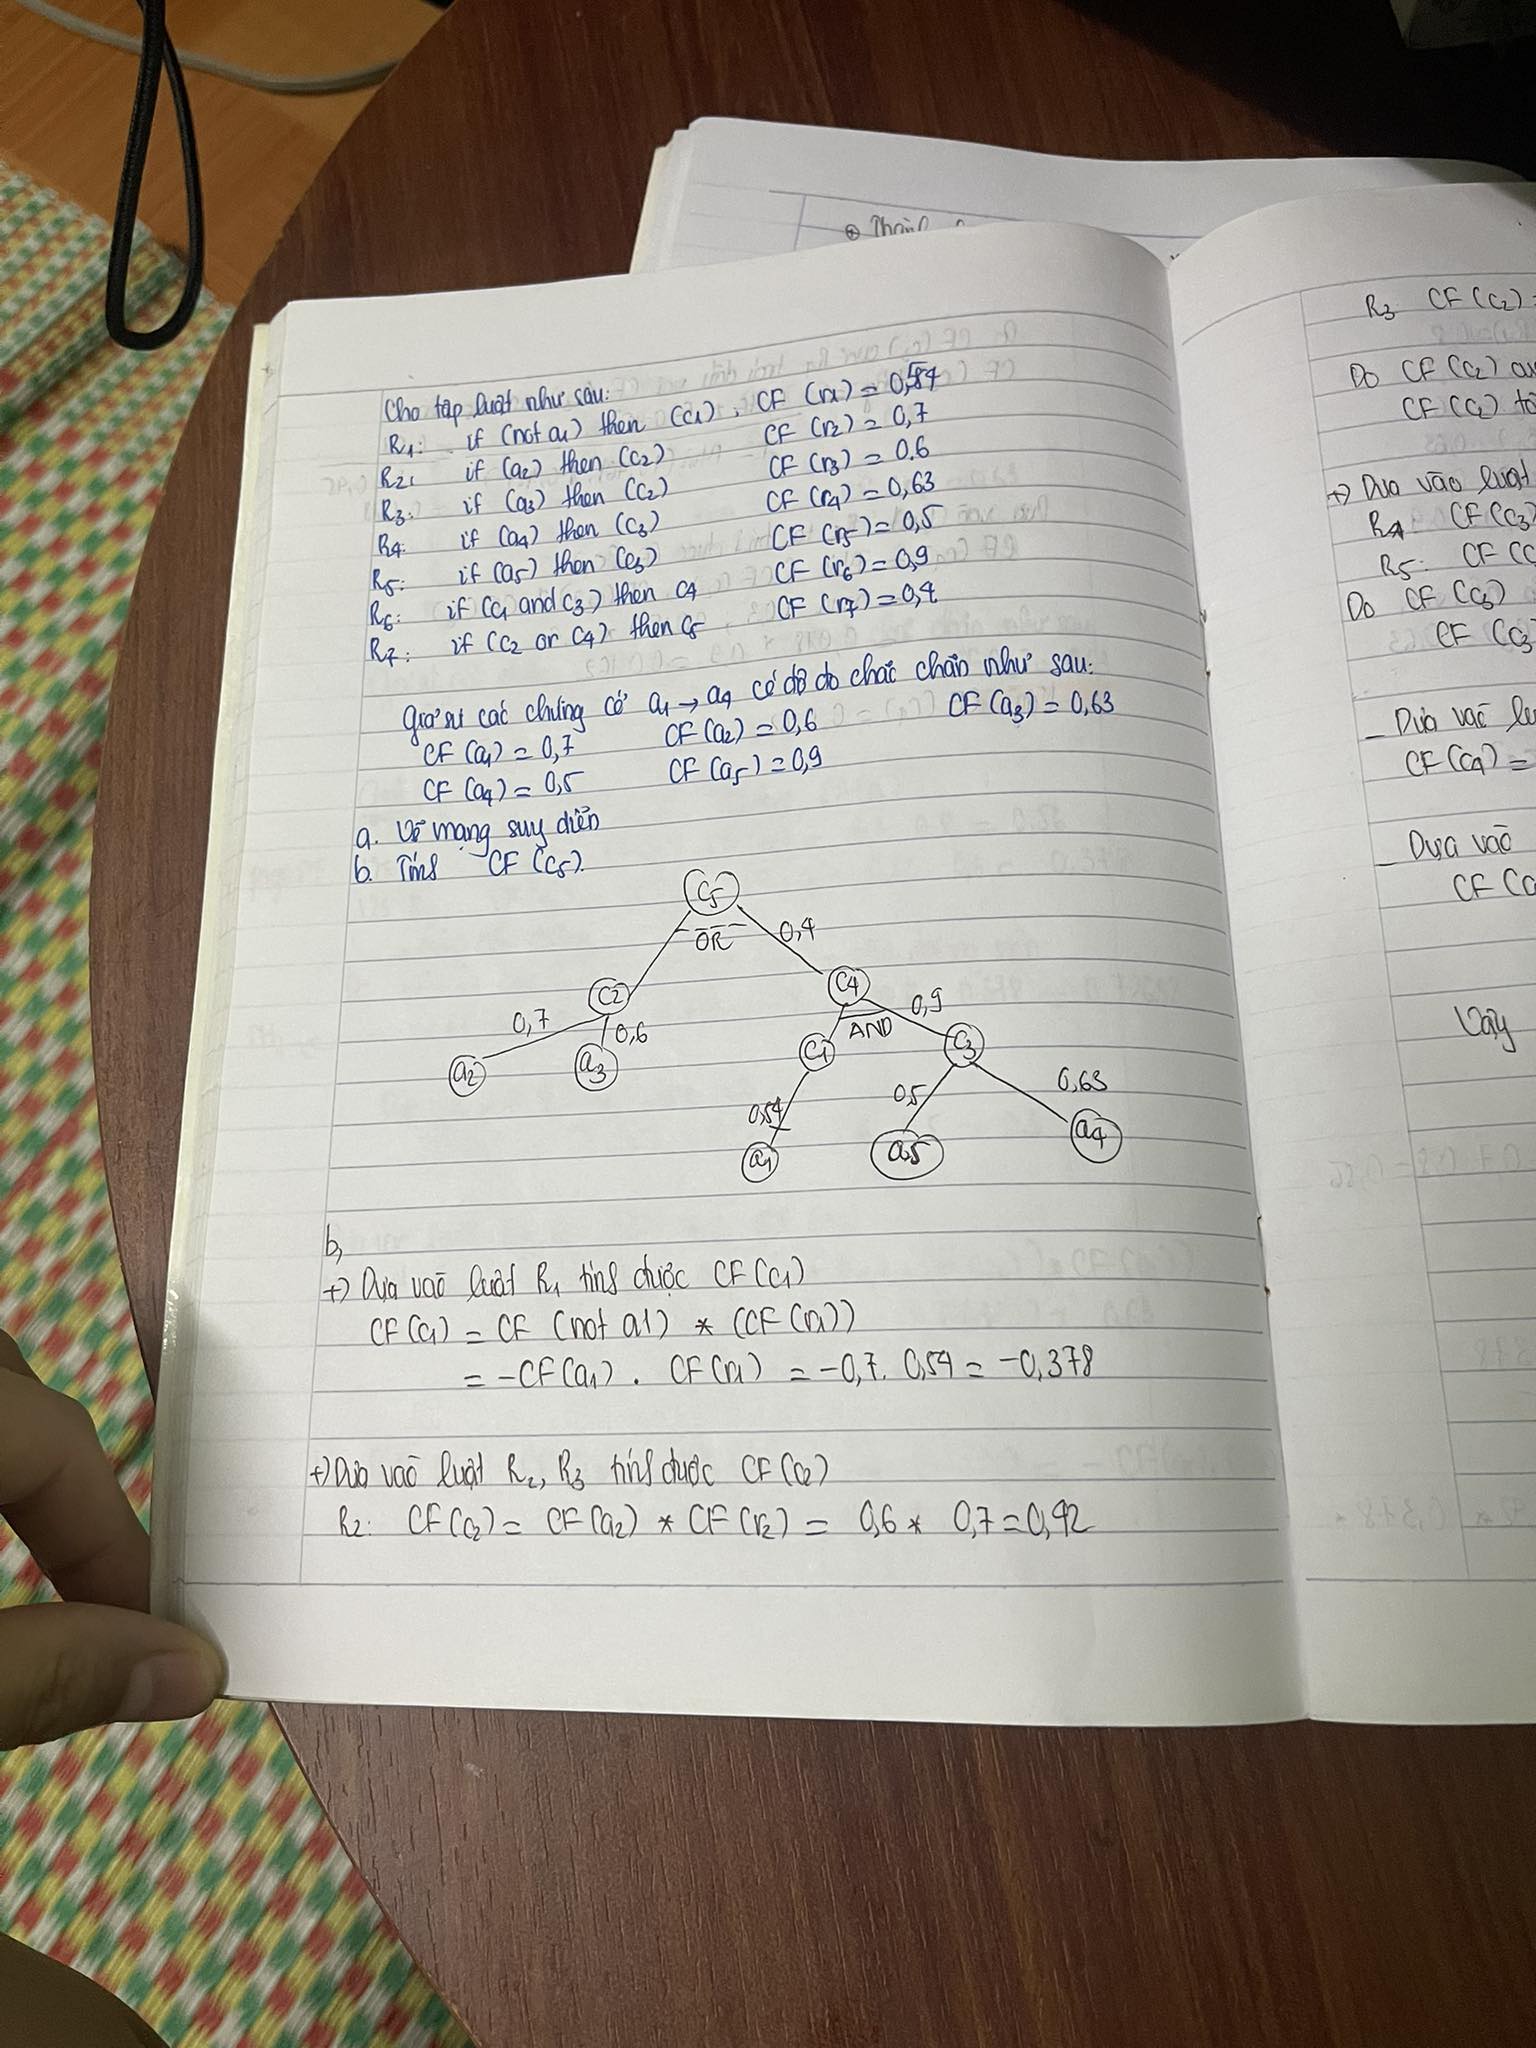 ⊛ Thành
Cho tập luật như sau:
R1: if (not a1) then (c1), CF (r1) = 0,54
R2: if (a2) then (c2) CF (r2) = 0,7
R3: if (a3) then (c2) CF (r3) = 0.6
R4: if (a4) then (c3) CF (r4) = 0,63
R5: if (a5) then (c3) CF (r5) = 0,5
R6: if (c1 and c3) then c4 CF (r6) = 0,9
R7: if (c2 or c4) then c5, CF (r7) = 0,4
Giả sử các chứng cớ a1 → a4 có độ đo chắc chắn như sau:
CF (a1) = 0,7 CF (a2) = 0,6 CF (a3) = 0,63
CF (a4) = 0,5 CF (a5) = 0,9
a. Vẽ mạng suy diễn
b. Tính CF (c5).
C5
OR 0,4
C2 C4
0,7 0,6 AND 0,9
a2 a3 C1 C3
0,54 0,5 0,63
a1 a5 a4
b,
+) Dựa vào luật R1 tính được CF (c1)
CF (c1) = CF (not a1) * (CF (r1))
= -CF (a1) . CF (r1) = -0,7. 0,54 = -0,378
+) Dựa vào luật R2, R3 tính được CF (c2)
R2: CF (c2) = CF (a2) * CF (r2) = 0,6 * 0,7 = 0,42
R3 CF (c2) =
Do CF (c2)
CF (c2)
+) Dựa vào luật
R4 CF (c3)
R5: CF (c
Do CF (c3)
CF (c3
_ Dựa vào
CF (c4) =
_ Dựa vào
CF (c
Vậy